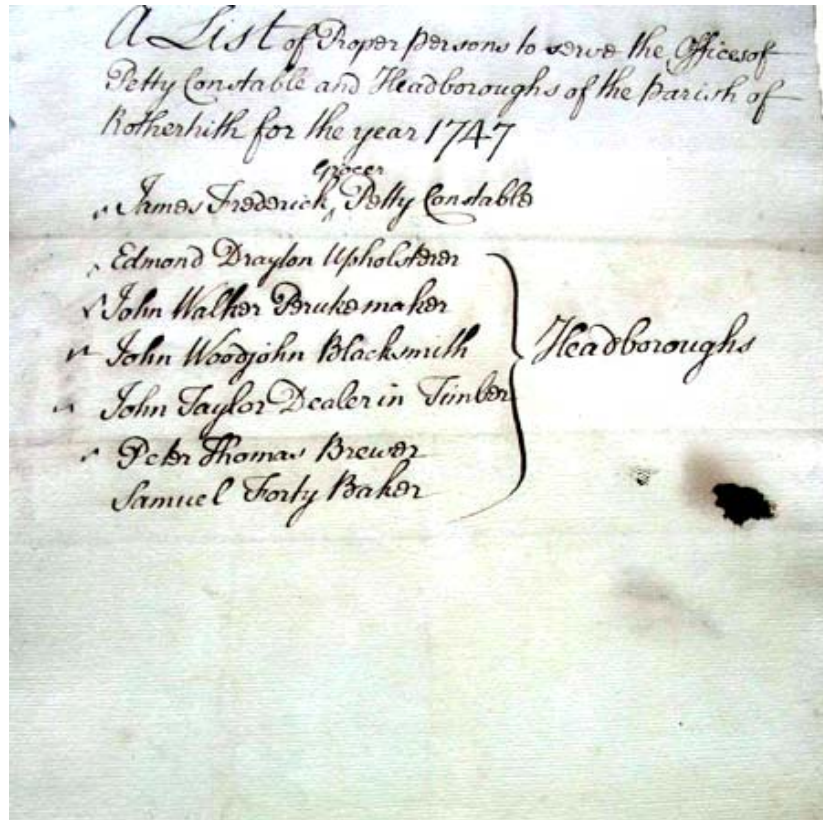 A List of Proper persons to serve the Offices of
Petty Constable and Headboroughs of the Parish of
Rotherhith for the year 1747
James Frederick, Grocer Petty Constable
Edmond Drayton Upholsterer
John Walker Perukemaker
John Woodjohn Blacksmith
John Taylor Dealer in Timber
Peter Thomas Brewer
Samuel Forty Baker
Headboroughs